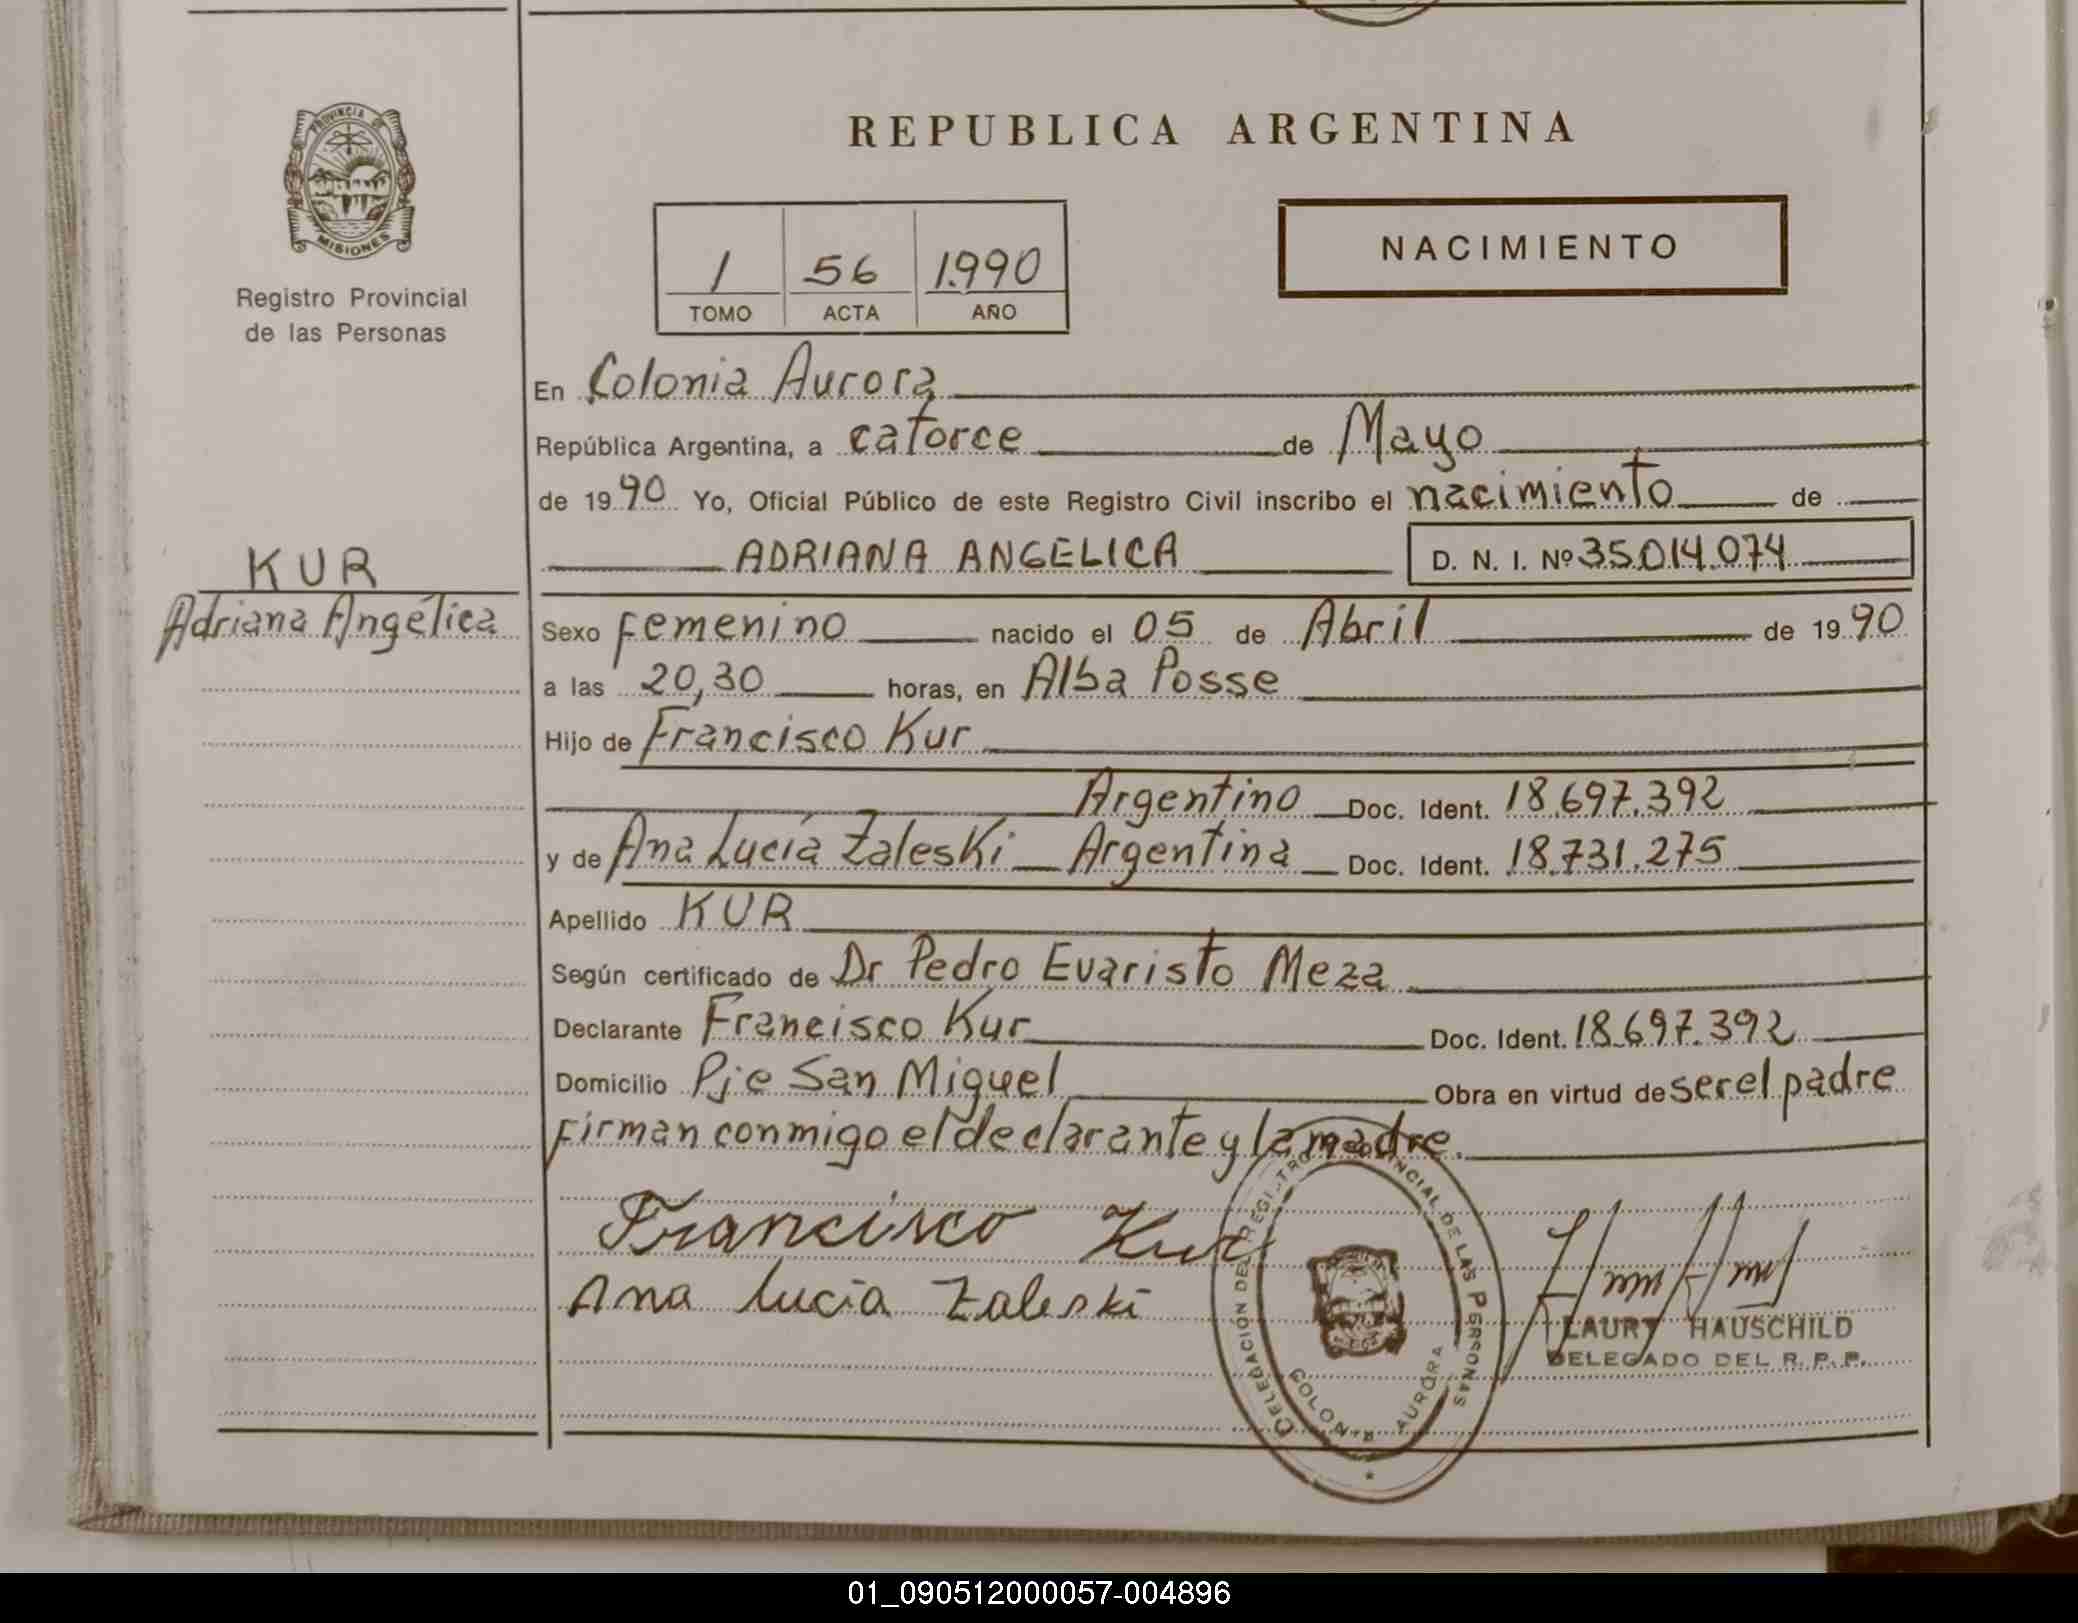 PROVINCIA DE
MISIONES
Registro Provincial
de las Personas
REPUBLICA ARGENTINA
1 56 1.990
TOMO ACTA AÑO
NACIMIENTO
En Colonia Aurora
República Argentina, a catorce de Mayo
de 1990 Yo, Oficial Público de este Registro Civil inscribo el nacimiento de
ADRIANA ANGELICA D. N. I. Nº 35.014.074
KUR
Adriana Angélica
Sexo femenino nacido el 05 de Abril de 1990
a las 20,30 horas, en Alba Posse
Hijo de Francisco Kur
Argentino Doc. Ident. 18.697.392
y de Ana Lucía Zaleski Argentina Doc. Ident. 18.731.275
Apellido KUR
Según certificado de Dr Pedro Evaristo Meza
Declarante Francisco Kur Doc. Ident. 18.697.392
Domicilio Pje San Miguel Obra en virtud de ser el padre
firman conmigo el declarante y la madre.
Francisco Kur
Ana Lucia Zaleski
DELEGACION DEL REGISTRO PROVINCIAL DE LAS PERSONAS
COLONIA AURORA
LAURY HAUSCHILD
DELEGADO DEL R. P. P.
01_090512000057-004896